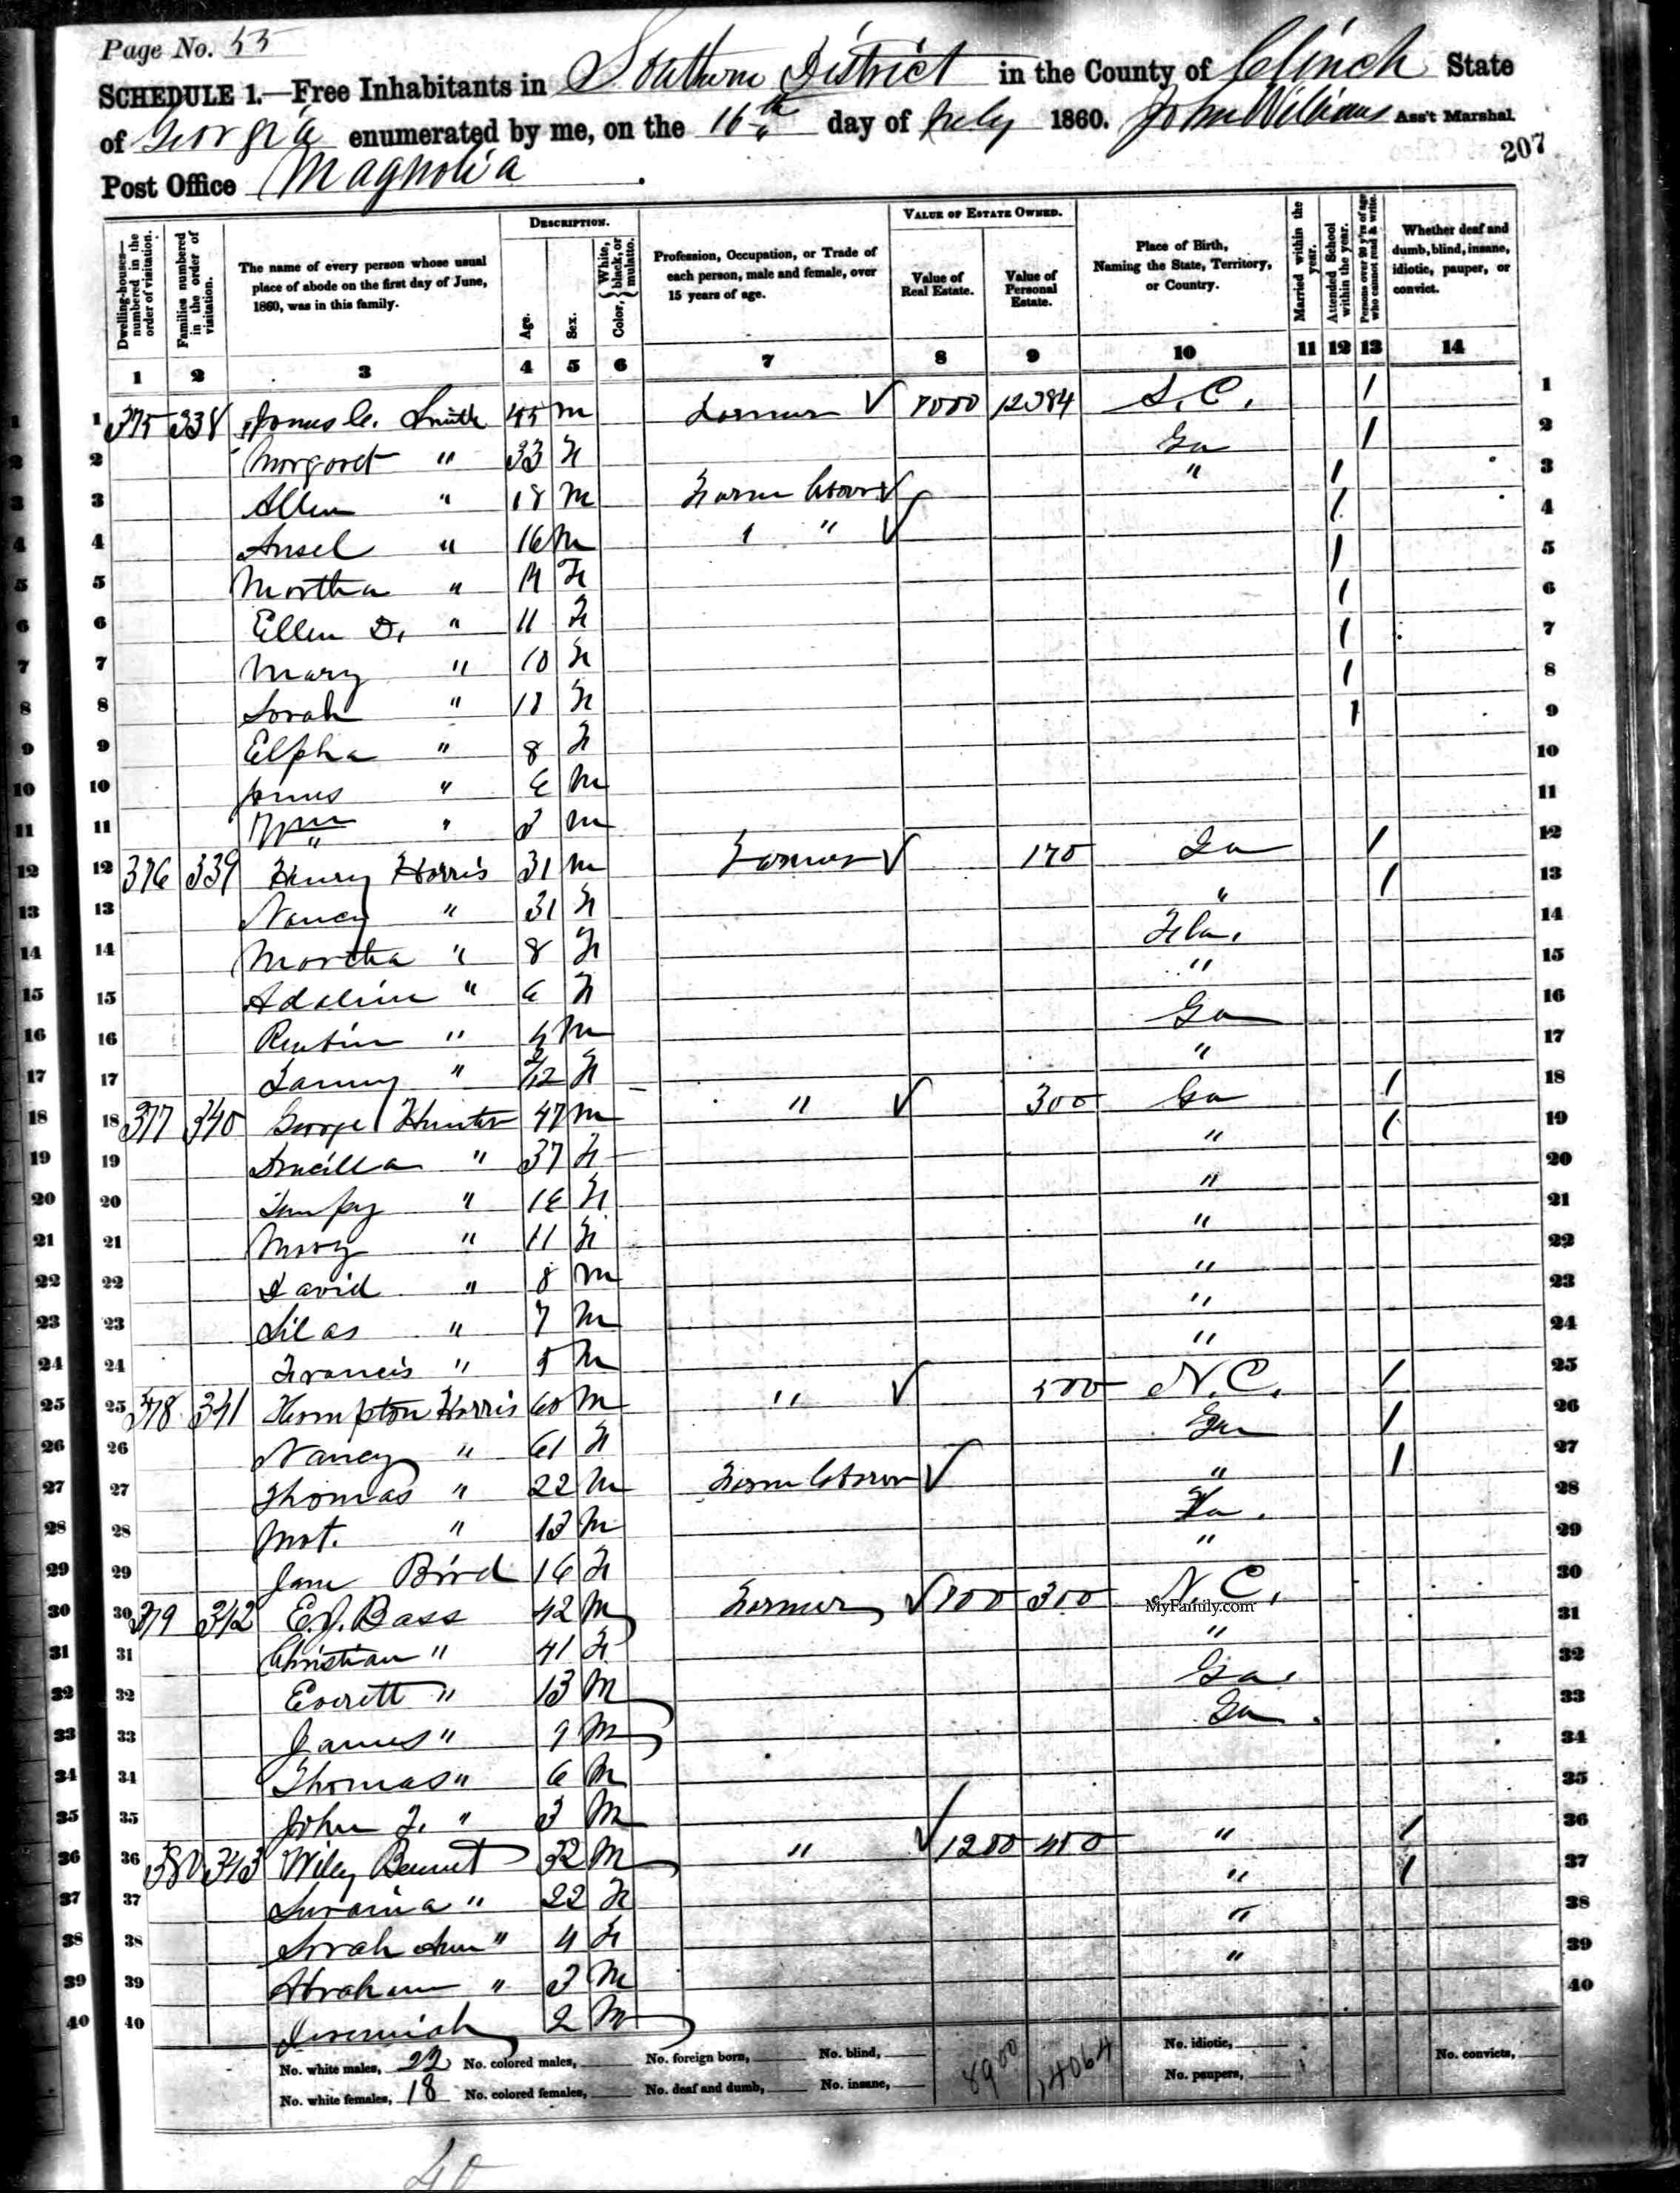 Page No. 55
SCHEDULE 1.—Free Inhabitants in Southern District in the County of Clinch State
of Georgia enumerated by me, on the 16th day of July 1860. John Williams Ass't Marshal.
Post Office Magnolia.
207
DESCRIPTION. VALUE OF ESTATE OWNED.
Dwelling-houses—numbered in the order of visitation. Families numbered in the order of visitation. The name of every person whose usual place of abode on the first day of June, 1860, was in this family. Age. Sex. Color, {White, black, or mulatto. Profession, Occupation, or Trade of each person, male and female, over 15 years of age. Value of Real Estate. Value of Personal Estate. Place of Birth, Naming the State, Territory, or Country. Married within the year. Attended School within the year. Persons over 20 y'rs of age who cannot read & write. Whether deaf and dumb, blind, insane, idiotic, pauper, or convict.
1 2 3 4 5 6 7 8 9 10 11 12 13 14
1 375 338 James C. Smith 45 m Farmer ✓ 12384 S.C. / 1
2 Margaret " 33 F Ga / 2
3 Allen " 18 m Farm ✓ " / 3
4 Ansel " 16 m " ✓ / 4
5 Martha " 14 F / 5
6 Ellen D. " 11 F / 6
7 Mary " 10 F / 7
8 Sarah " F / 8
9 Elpha " 8 F / 9
10 James " 6 m 10
11 Wm " 3 m 11
12 376 339 Henry Harris 31 m Farmer ✓ 170 Ga / 12
13 Nancy " 31 F " / 13
14 Martha " 8 F Fla. 14
15 Adaline " 6 F " 15
16 Reubin " 4 m Ga 16
17 Fanny " 2/12 F " 17
18 377 340 George Hunter 47 m " ✓ 300 Ga / 18
19 Drucilla " 37 F " / 19
20 " 16 F " 20
21 Mary " 11 F " 21
22 David " 8 m " 22
23 Silas " 7 m " 23
24 Francis " 5 m " 24
25 378 341 Hampton Harris 60 m " ✓ 500 N.C. / 25
26 Nancy " 61 F Ga / 26
27 Thomas " 22 m Farm ✓ " / 27
28 Mat. " 13 m Fa. 28
29 Jane Bird 16 F " 29
30 379 342 E.J. Bass 42 M Farmer ✓ 300 N.C. 30
MyFamily.com
31 Christian " 41 F " 31
32 Everett " 13 M Ga. 32
33 James " 9 M Ga. 33
34 Thomas " 6 M 34
35 John F. " 3 M 35
36 380 343 Wiley Bennet 32 M " ✓ 1200 450 " / 36
37 " 22 F " / 37
38 Sarah Ann " 4 F " 38
39 Abraham " 3 M " 39
40 Jeremiah 2 M 40
No. white males, 22 No. colored males, No. foreign born, No. blind, 8900 14064 No. idiotic,
No. white females, 18 No. colored females, No. deaf and dumb, No. insane, No. paupers, No. convicts,
40